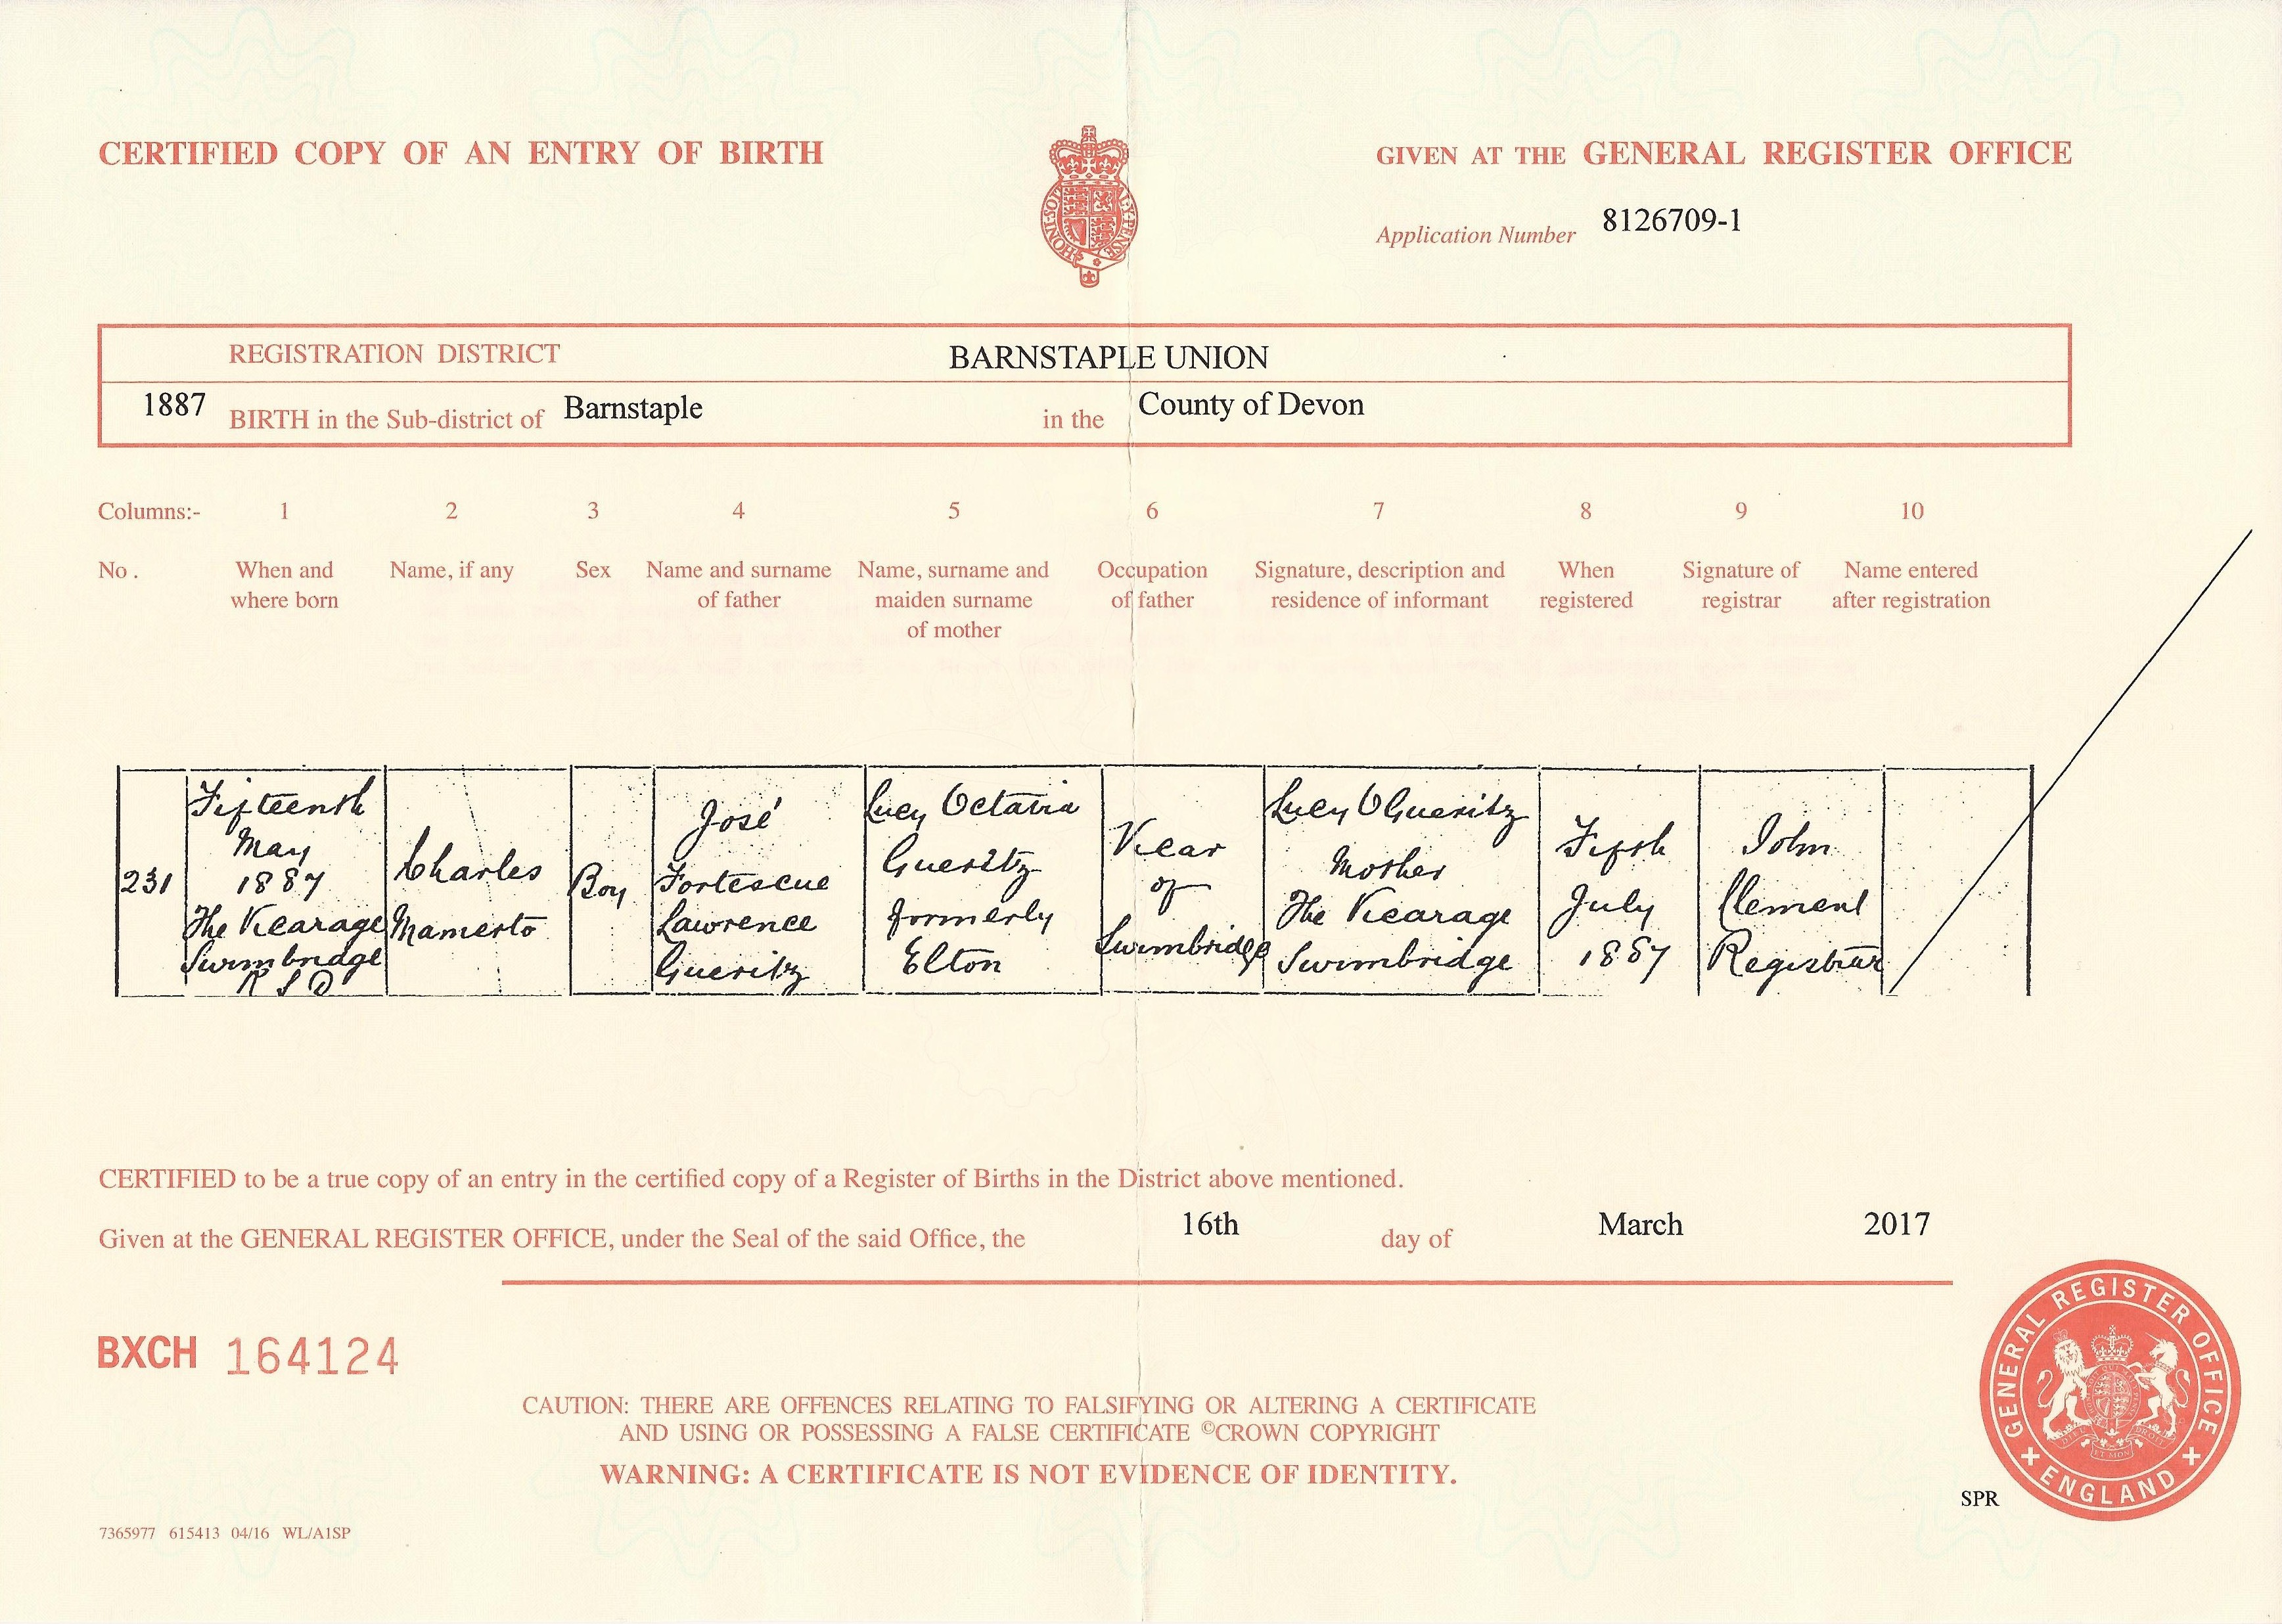 CERTIFIED COPY OF AN ENTRY OF BIRTH
GIVEN AT THE GENERAL REGISTER OFFICE
Application Number 8126709-1
REGISTRATION DISTRICT BARNSTAPLE UNION
1887 BIRTH in the Sub-district of Barnstaple in the County of Devon
Columns:- 1 2 3 4 5 6 7 8 9 10
No. When and where born
Name, if any
Sex
Name and surname of father
Name, surname and maiden surname of mother
Occupation of father
Signature, description and residence of informant
When registered
Signature of registrar
Name entered after registration
231
Fifteenth
May
1887
The Vicarage
Swimbridge
R S O
Charles
Mamerto
Boy
José
Fortescue
Lawrence
Gueritz
Lucy Octavia
Gueritz
formerly
Elton
Vicar
of
Swimbridge
Lucy O Gueritz
Mother
The Vicarage
Swimbridge
Fifth
July
1887
John
Clement
Registrar
CERTIFIED to be a true copy of an entry in the certified copy of a Register of Births in the District above mentioned.
Given at the GENERAL REGISTER OFFICE, under the Seal of the said Office, the 16th day of March 2017
BXCH 164124
CAUTION: THERE ARE OFFENCES RELATING TO FALSIFYING OR ALTERING A CERTIFICATE
AND USING OR POSSESSING A FALSE CERTIFICATE ©CROWN COPYRIGHT
WARNING: A CERTIFICATE IS NOT EVIDENCE OF IDENTITY.
GENERAL REGISTER OFFICE
ENGLAND
SPR
7365977 615413 04/16 WL/A1SP